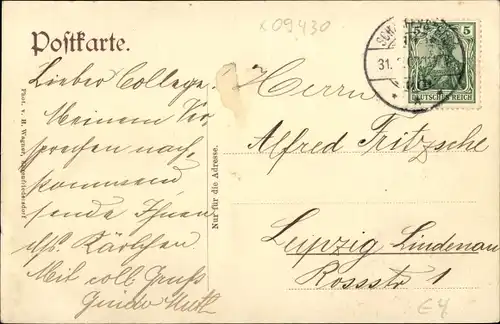 x 09430
Postkarte.
5 5
DEUTSCHES REICH
31.
Lieber College!
Meinem Ver
sprechen nach
kommend
sende Ihnen
Kärtchen
Mit coll Gruß
Guido
Phot. v. H. Wagner,
Nur für die Adresse.
Herrn
Alfred Fritzsche
Leipzig Lindenau
Rossstr 1
€4